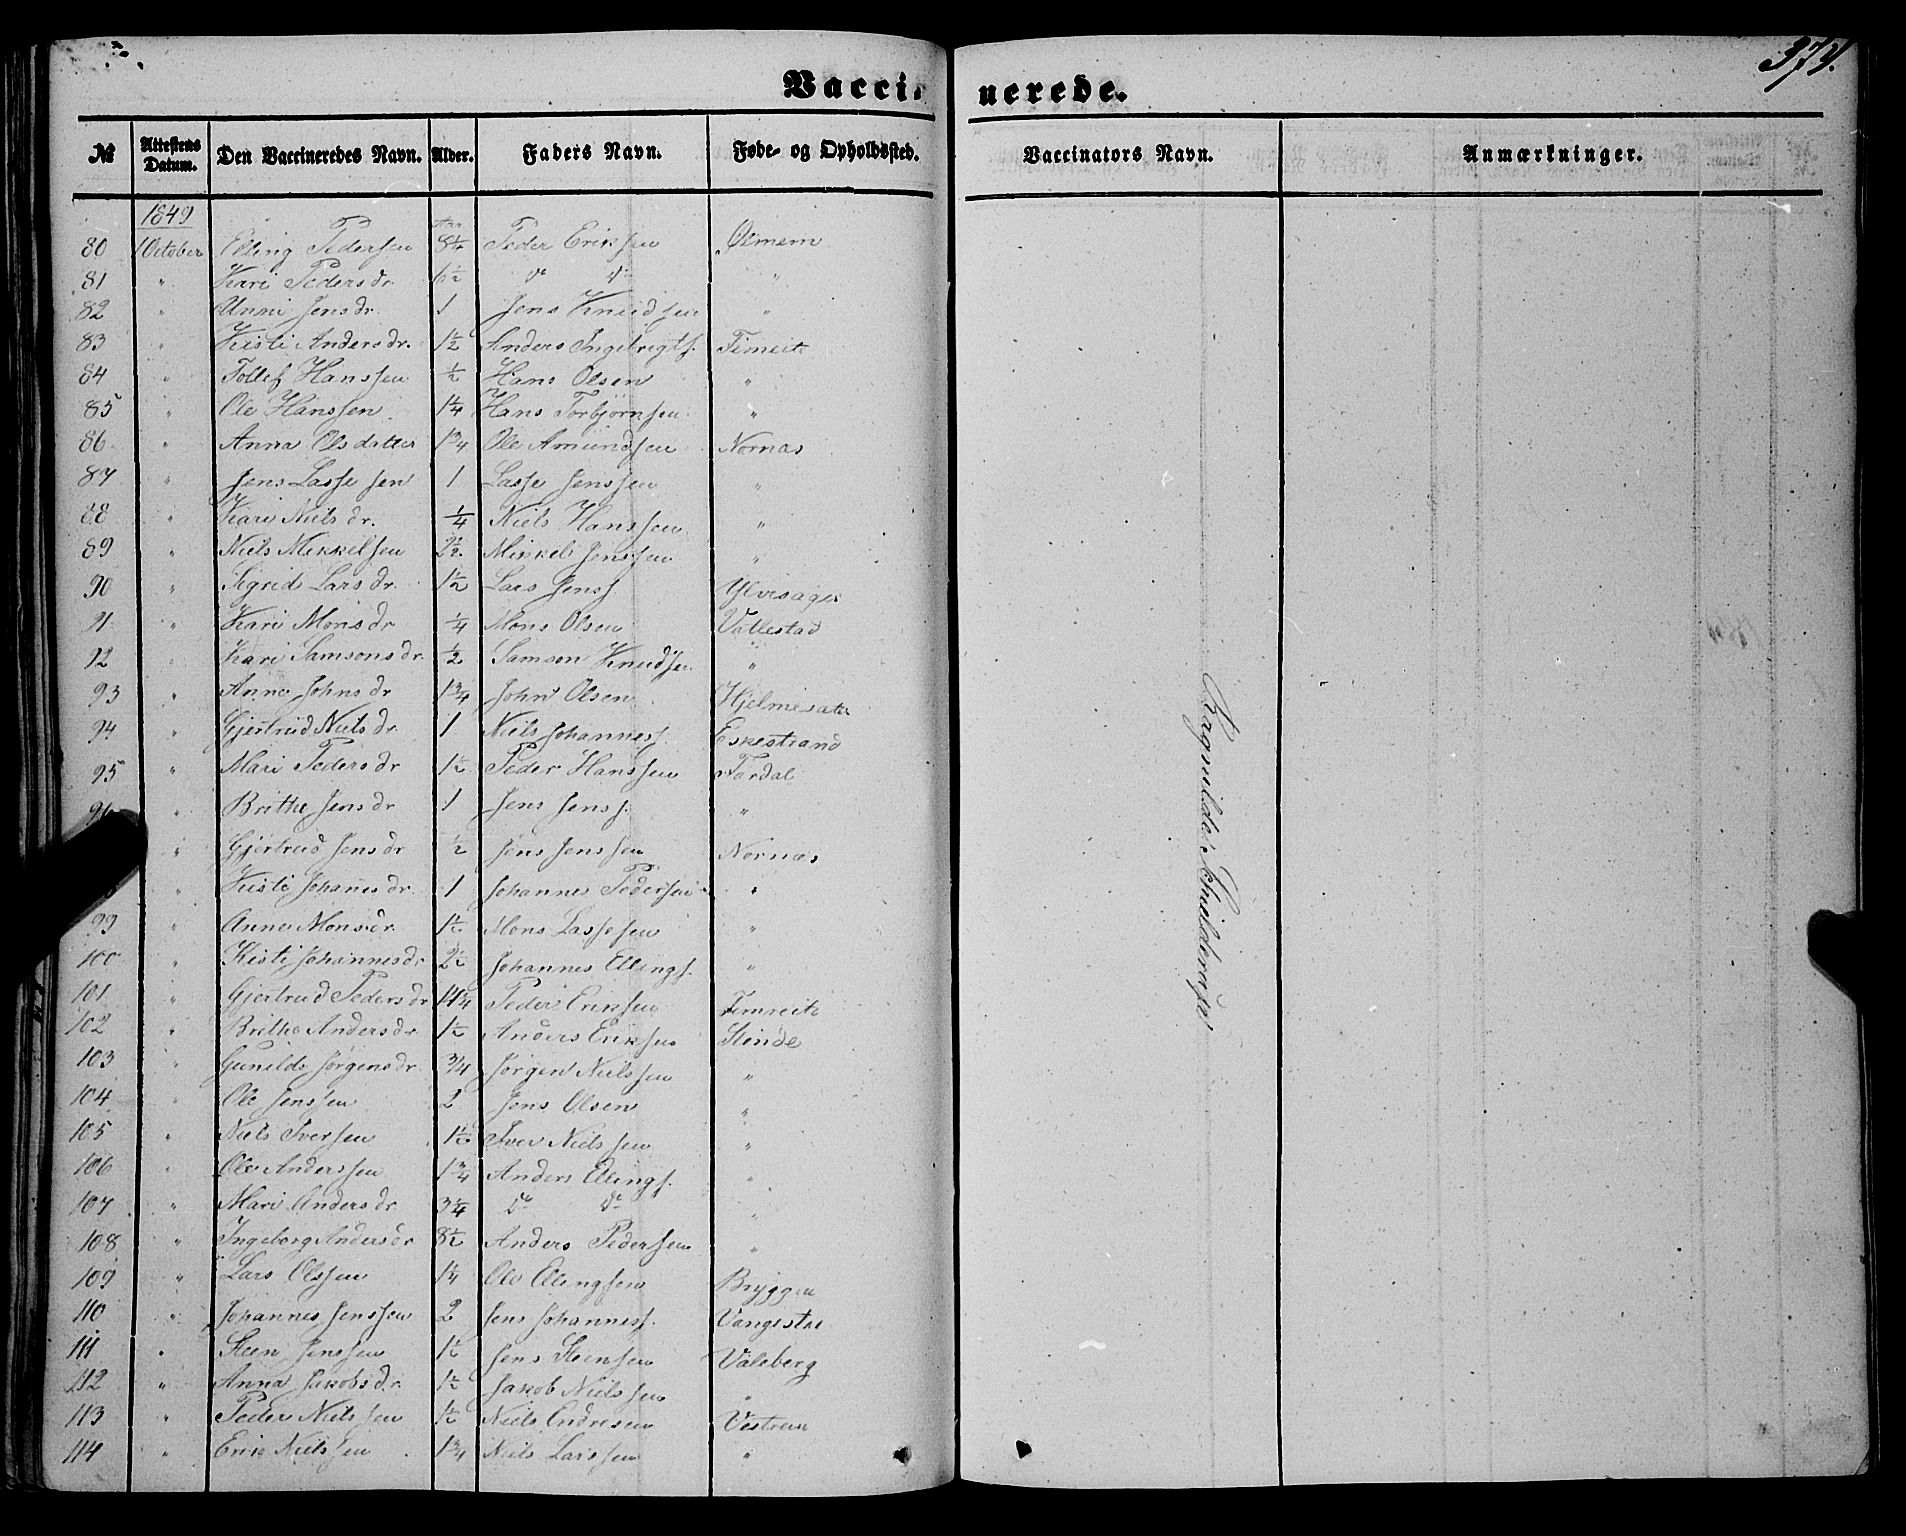 374.
Vaccinerede.
№ Attestens Datum. Den Vaccineredes Navn. Alder. Faders Navn. Føde- og Opholdssted. Vaccinators Navn. Anmærkninger.
1849
80 1 October Elling Pedersen Aar 8½ Peder Eriksen Ølmem
81 " Kari Pedersdr. 6½ do do "
82 " Unni Jensdr. 1 Jens Knudsen "
83 " Kisti Andersdr. 1½ Anders Ingebrigts. Timeite
84 " Tollef Hanssen ½ Hans Olsen "
85 " Ole Hanssen 1¼ Hans Torbjørnsen "
86 " Anna Olsdatter 1¾ Ole Amundsen Nornæs
87 " Jens Lassesen 1 Lasse Jenssen "
88 " Kari Nielsdr. ¼ Niels Hanssen "
89 " Niels Mikkelsen 2½ Mikkel Jenssen "
90 " Sigrid Larsdr. 1½ Lars Jens. Ylvisager
91 " Kari Monsdr ¼ Mons Olsen Vallestad
92 " Kari Samsonsdr. ½ Samson Knudsen "
93 " Anna Johnsdr 1¾ John Olsen Hjelmesæte
94 " Gjertrud Nielsdr 1 Niels Johannes. Eskestrand
95 " Mari Pedersdr 1½ Peder Hanssen Nordal
96 " Brithe Jensdr 1 Jens Jens. "
" Gjertrud Jensdr ½ Jens Jenssen Nornæs
" Kisti Johanesdr. 1 Johannes Pedersen "
99 " Anna Monsdr. 1½ Mons Lassesen "
100 " Kisti Johannesdr 2½ Johannes Ellings. "
101 " Gjertrud Pedersdr 11¾ Peder Eriksen Timreite
102 " Brithe Andersdr 1½ Anders Eriksen Slinde
103 " Gunilde Jørgensdr. ¾ Jørgen Nielssen "
104 " Ole Jenssen 2 Jens Olsen "
105 " Niels Iversen 1½ Iver Nielssen "
106 " Ole Anderssen 1¾ Anders Ellings. "
107 " Mari Andersdr 3¼ do do "
108 " Ingeborg Andersdr 8½ Anders Pedersen "
109 " Lars Olssen 1¼ Ole Ellingsen Bryggen
110 " Johannes Jenssen 2 Jens Johanness. Vangestad
111 " Steen Jenssen 1½ Jens Steensen Valeberg
112 " Anna Jakobsdr. 1½ Jakob Nielssen "
113 " Peder Nielssen ½ Niels Endresen Vestrem
114 " Erik Nielssen 1¾ Niels Larssen "
Ragnilde